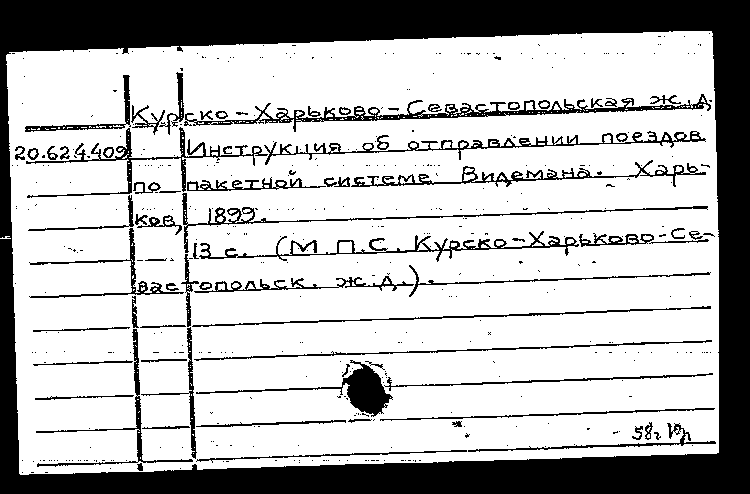 Курско-Харьково-Севастопольская ж.д.
20.624.409 Инструкция об отправлении поездов
по пакетной системе Видемана. Харь-
ков, 1899.
13 с. (М.П.С. Курско-Харьково-Се-
вастопольск. ж.д.).
58г